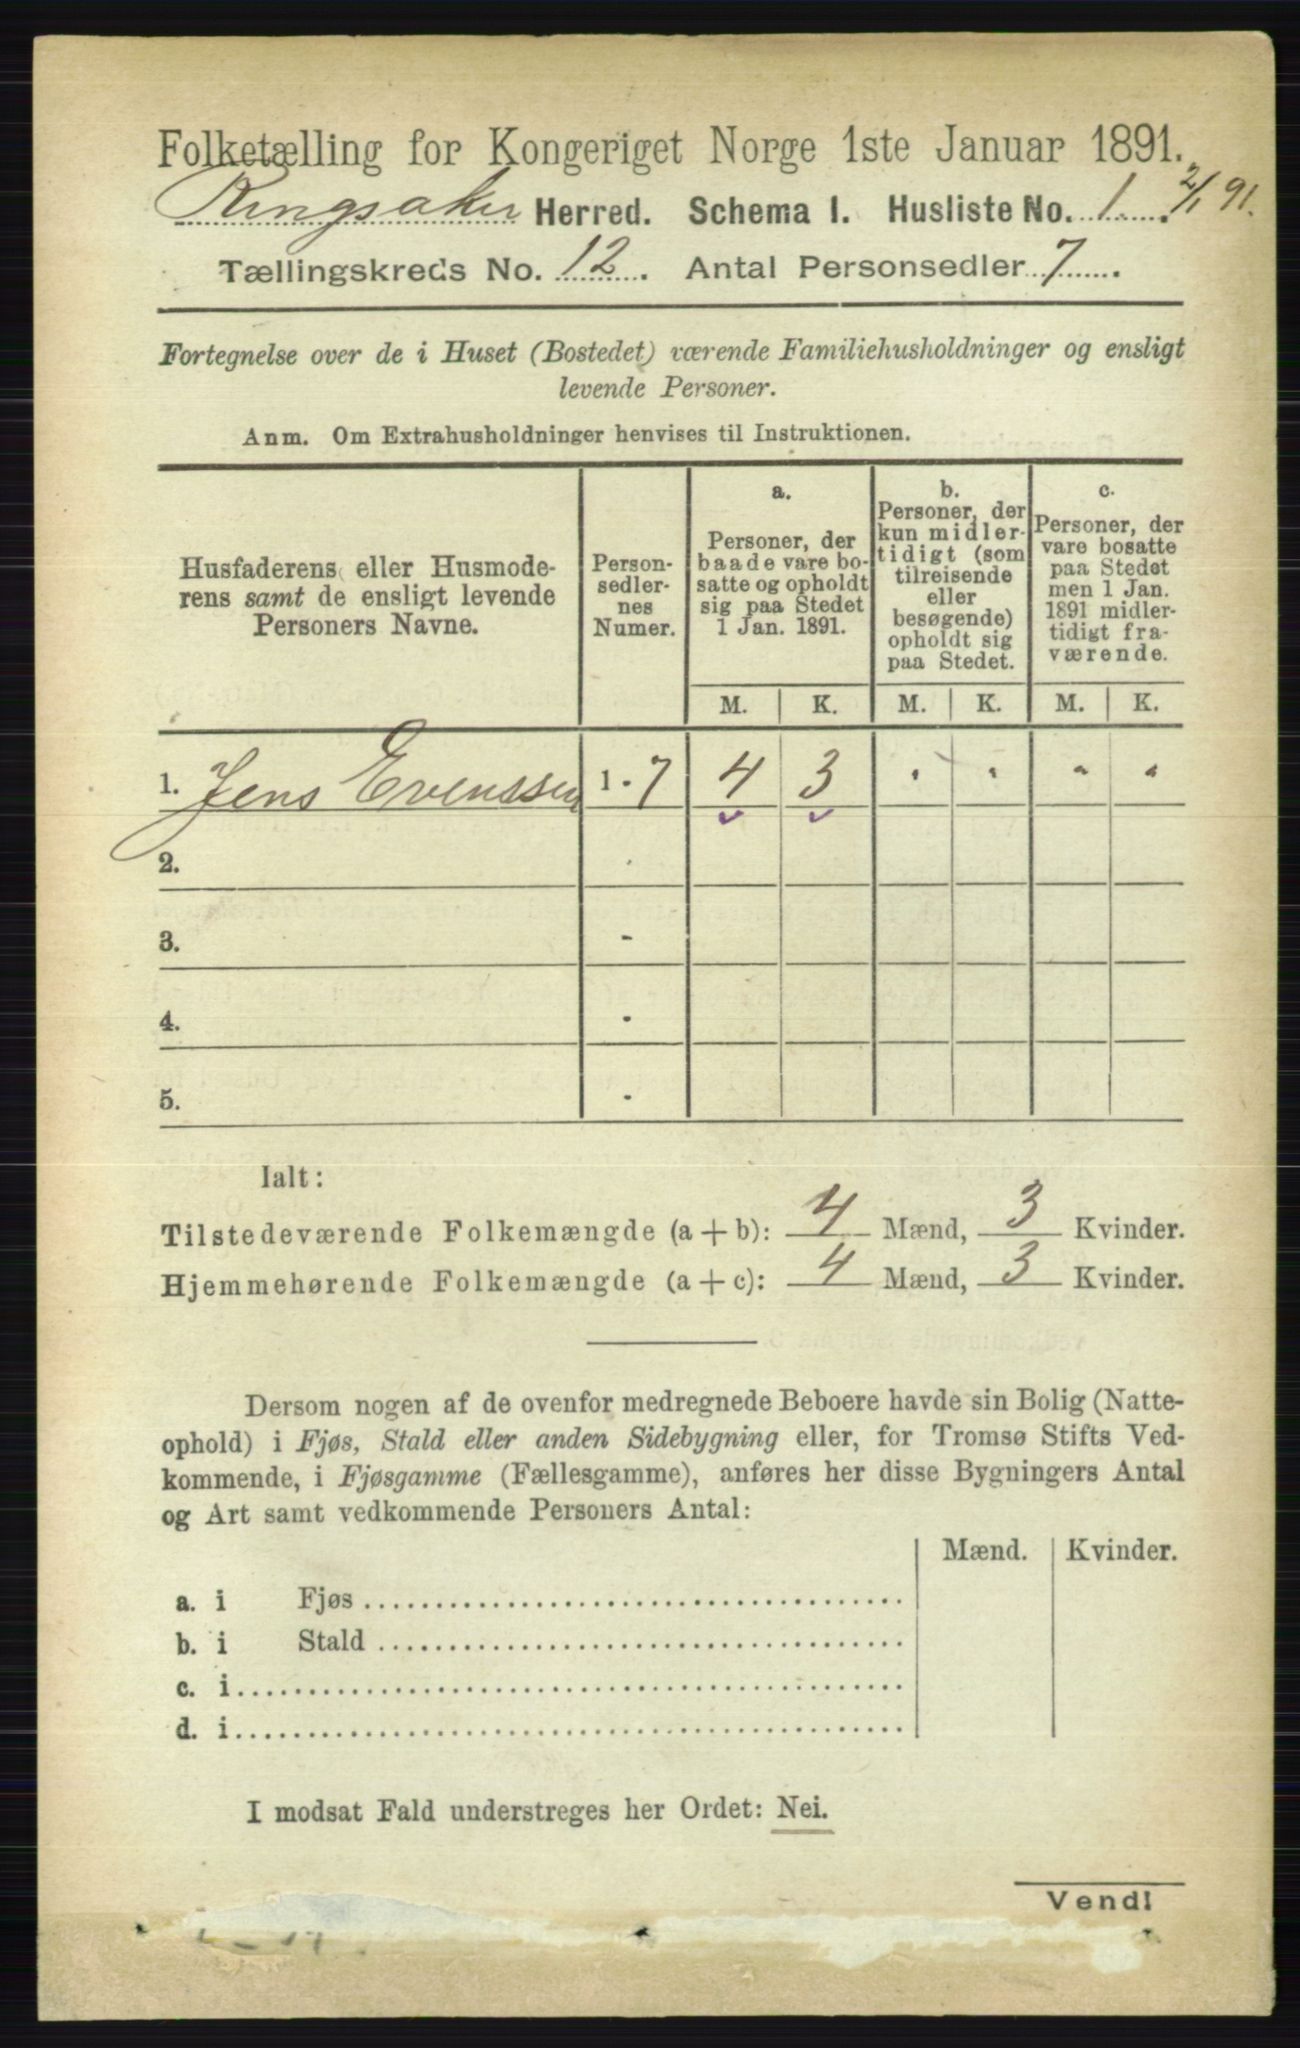 Folketælling for Kongeriget Norge 1ste Januar 1891.
Ringsaker Herred. Schema I. Husliste No. 1. 2/1 91.
Tællingskreds No. 12. Antal Personsedler 7.
Fortegnelse over de i Huset (Bostedet) værende Familiehusholdninger og ensligt
levende Personer.
Anm. Om Extrahusholdninger henvises til Instruktionen.
Husfaderens eller Husmode-
rens samt de ensligt levende
Personers Navne.
Person-
sedler-
nes
Numer.
a.
Personer, der
baade vare bo-
satte og opholdt
sig paa Stedet
1 Jan. 1891.
b.
Personer, der
kun midler-
tidigt (som
tilreisende
eller
besøgende)
opholdt sig
paa Stedet.
c.
Personer, der
vare bosatte
paa Stedet
men 1 Jan.
1891 midler-
tidigt fra-
værende.
M. K. M. K. M. K.
1. Jens Evenssen 1 - 7 4 3 " " " "
2.
3. -
4. -
5. -
Ialt:
Tilstedeværende Folkemængde (a + b): 4 Mænd, 3 Kvinder.
Hjemmehørende Folkemængde (a + c): 4 Mænd, 3 Kvinder.
Dersom nogen af de ovenfor medregnede Beboere havde sin Bolig (Natte-
ophold) i Fjøs, Stald eller anden Sidebygning eller, for Tromsø Stifts Ved-
kommende, i Fjøsgamme (Fællesgamme), anføres her disse Bygningers Antal
og Art samt vedkommende Personers Antal:
Mænd. Kvinder.
a. i Fjøs
b. i Stald
c. i
d. i
I modsat Fald understreges her Ordet: Nei.
Vend!